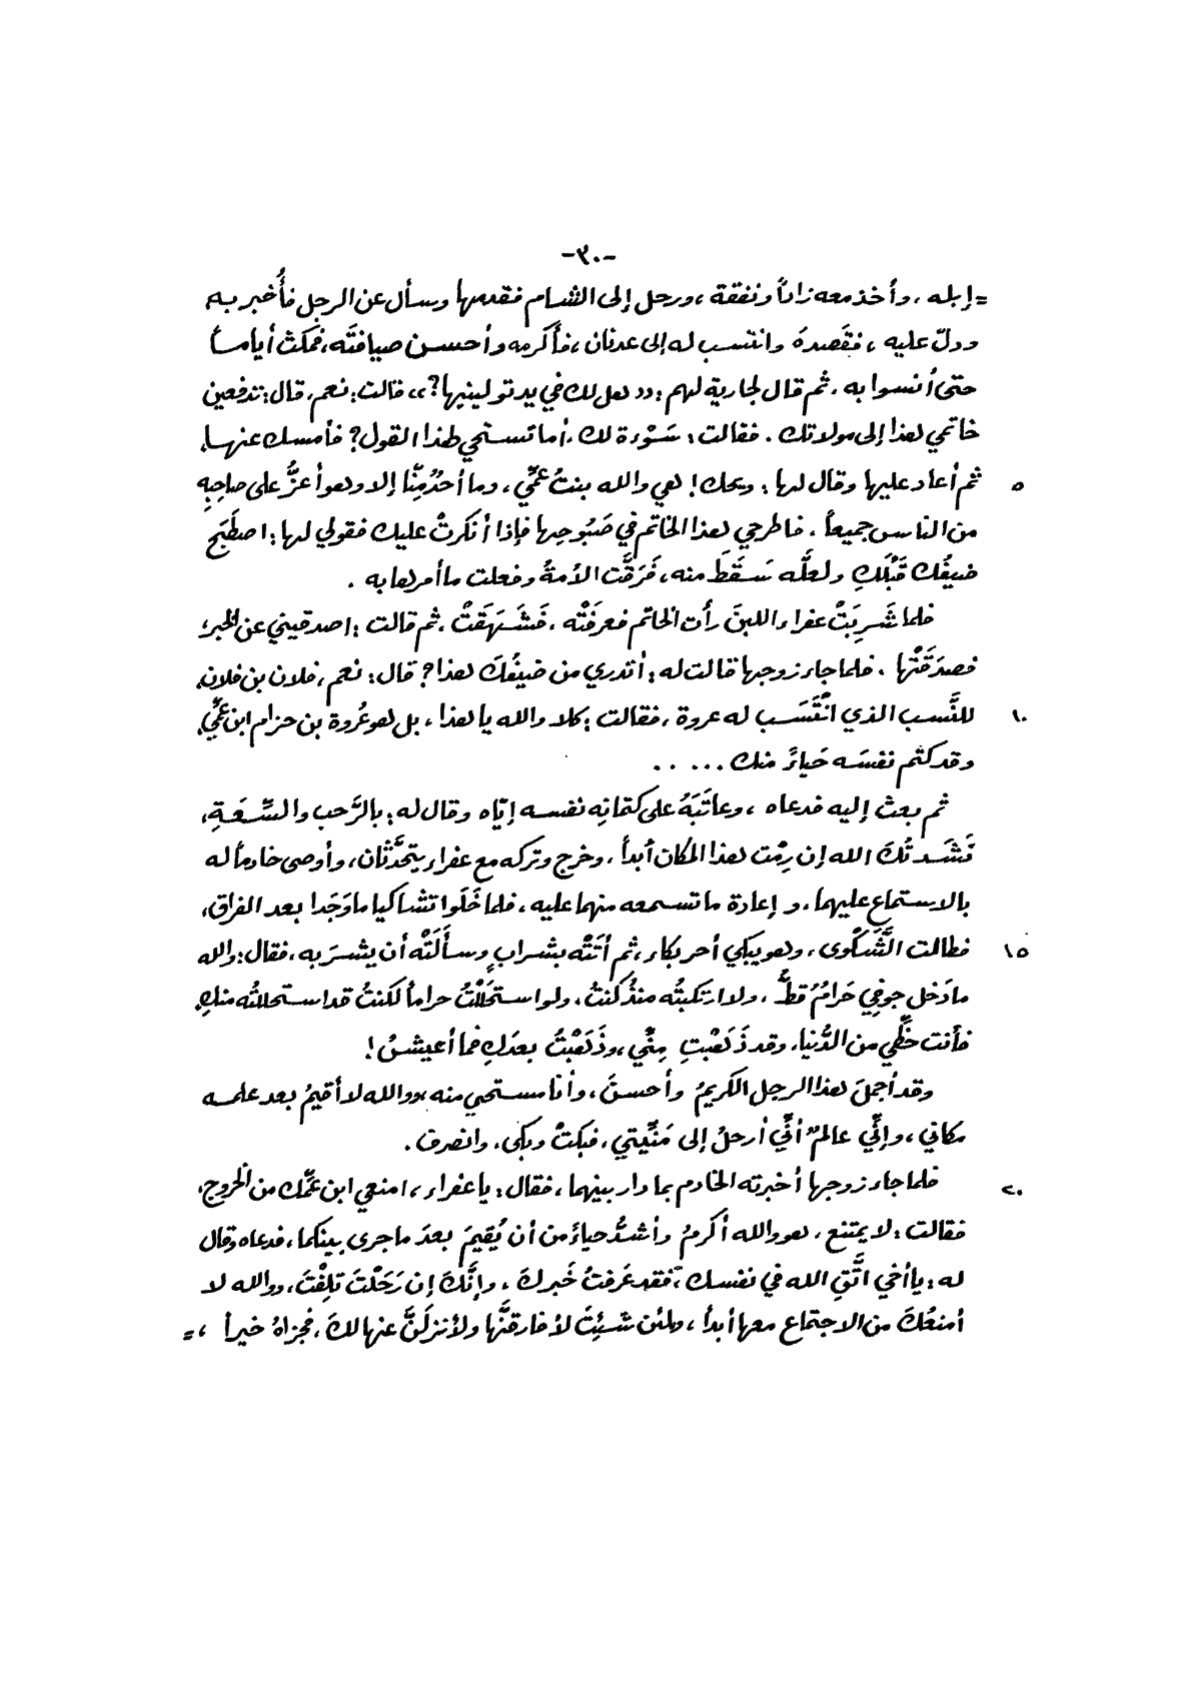 -٣٠-
= إبله ، وأخذ معه زاداً ونفقة ، ورحل إلى الشام فقدمها وسأل عن الرجل فأُخبر به
ودلّ عليه ، فقَصدهُ وانتسب له إلى عدنان ، فأكرمه وأحسن ضيافتَه ، فمكث أياماً
حتى أنسوا به ، ثم قال لجارية لهم : « هل لك في يدٍ تولينيها؟ » قالت : نعم ، قال : تدفعين
خاتمي هذا إلى مولاتك . فقالت : سَوْءة لك ، أما تستحي لهذا القول ؟ فأمسك عنها ،
٥ ثم أعاد عليها وقال لها : ويحك ! هي والله بنتُ عمِّي ، وما أحدٌ مِنَّا إلا وهو أعزُّ على صاحبِهِ
من الناس جميعاً ، فاطرحي هذا الخاتم في صَبُوحِها فإذا أنكرتْ عليك فقولي لها : اصطَبَحَ
ضيفُك قَبْلَكِ ولعلَّه سَقَطَ منه ، فَرَقَّت الأمةُ وفعلت ما أمرها به .
فلما شَرِبَتْ عفراء اللبنَ رأت الخاتم فعرَفَتْه ، فَشَهَقَتْ ، ثم قالت : اصدقيني عن الخبر ،
فصدَقَتْها . فلما جاء زوجها قالت له : أتدري من ضيفُكَ هذا ؟ قال : نعم ، فلان بن فلان ،
١٠ للنَّسب الذي انْتَسَب له عروة ، فقالت : كلا والله يا هذا ، بل هو عُروة بن حزام ابن عمِّي ،
وقد كتم نفسَه حَياءً منك . . . . .
ثم بعث إليه فدعاه ، وعاتَبَهُ على كتمانِه نفسه إيّاه وقال له : بالرَّحب والسِّعَةِ ،
نَشَدتُكَ الله إن رِمْت هذا المكان أبداً ، وخرج وتركه مع عفراء يتحدَّثان ، وأوصى خادماً له
بالاستماع عليهما ، و إعادة ما تسمعه منهما عليه ، فلما خَلَوا تشاكيا ما وَجَدا بعد الفراق ،
١٥ فطالت الشَّكْوى ، وهو يبكي أحر بكاء ، ثم أتَتْه بشرابٍ وسألَتْه أن يشربَ به ، فقال : والله
ما دَخل جوفِي حَرامٌ قطُّ ، ولا ارتكبتُه منذُ كنتُ ، ولو استحلَلْتُ حراماً لكنتُ قد استحللتُه منكِ ،
فأنت حظِّي من الدُّنيا ، وقد ذَهَبْتِ مِنِّي ، وذَهَبْتُ بعدَكِ فما أعيشُ !
وقد أجملَ هذا الرجل الكريمُ وأحسنَ ، وأنا مستحيي منه ، ووالله لا أقيمُ بعد علمه
مكاني ، وإنِّي عالمٌ أنِّي أرحلُ إلى مَنِيَّتي ، فبكتْ وبكى ، وانصرف .
٢٠ فلما جاء زوجها أخبرته الخادم بما دار بينهما ، فقال : يا عفراء ، امنعي ابن عمِّك من الخروج ،
فقالت : لا يمتنع ، هو والله أكرمُ وأشدُّ حياءً من أن يُقيمَ بعدَ ما جرى بينكما ، فدعاه وقال
له : يا أخي اتَّقِ الله في نفسك ، فقد عَرفتُ خَبركَ ، وإنَّكَ إن رَحَلْتَ تَلِفْتَ ، ووالله لا
أمنعُكَ من الاجتماع معها أبداً ، ولئن شئتَ لأفارقنَّها ولأنزلَنَّ عنها لكَ ، فجزاهُ خيراً ، =